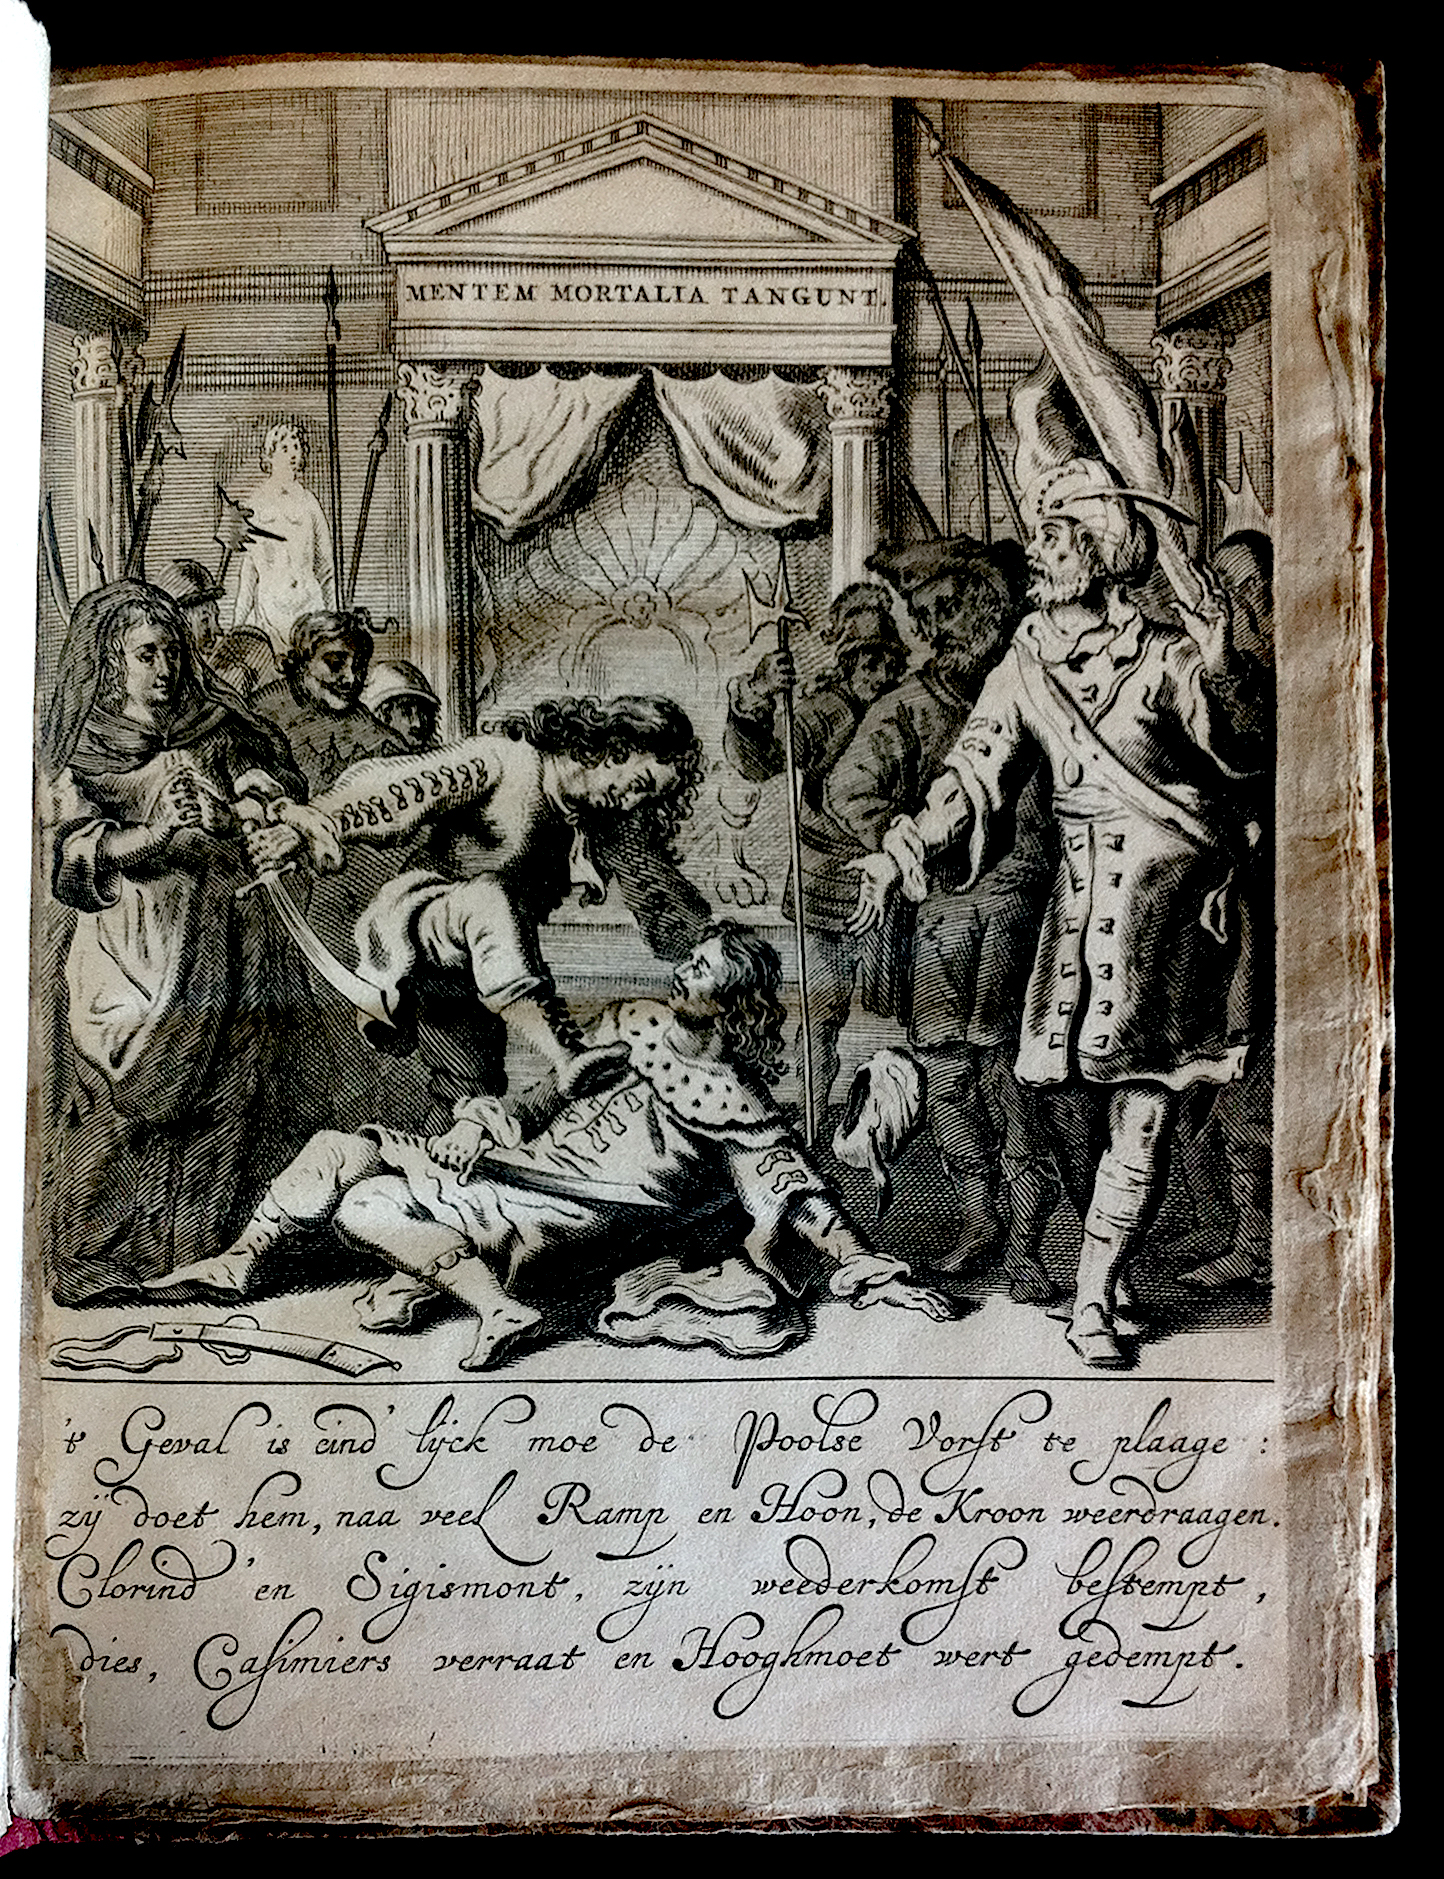 MENTEM MORTALIA TANGUNT.
't Geval is eind'lijck moe de Poolse Vorst te plaage:
zij doet hem, naa veel Ramp en Hoon, de Kroon weerdraagen.
Clorind'en Sigismont, zijn weederkomst bestempt,
dies, Casimiers verraat en Hooghmoet wert gedempt.